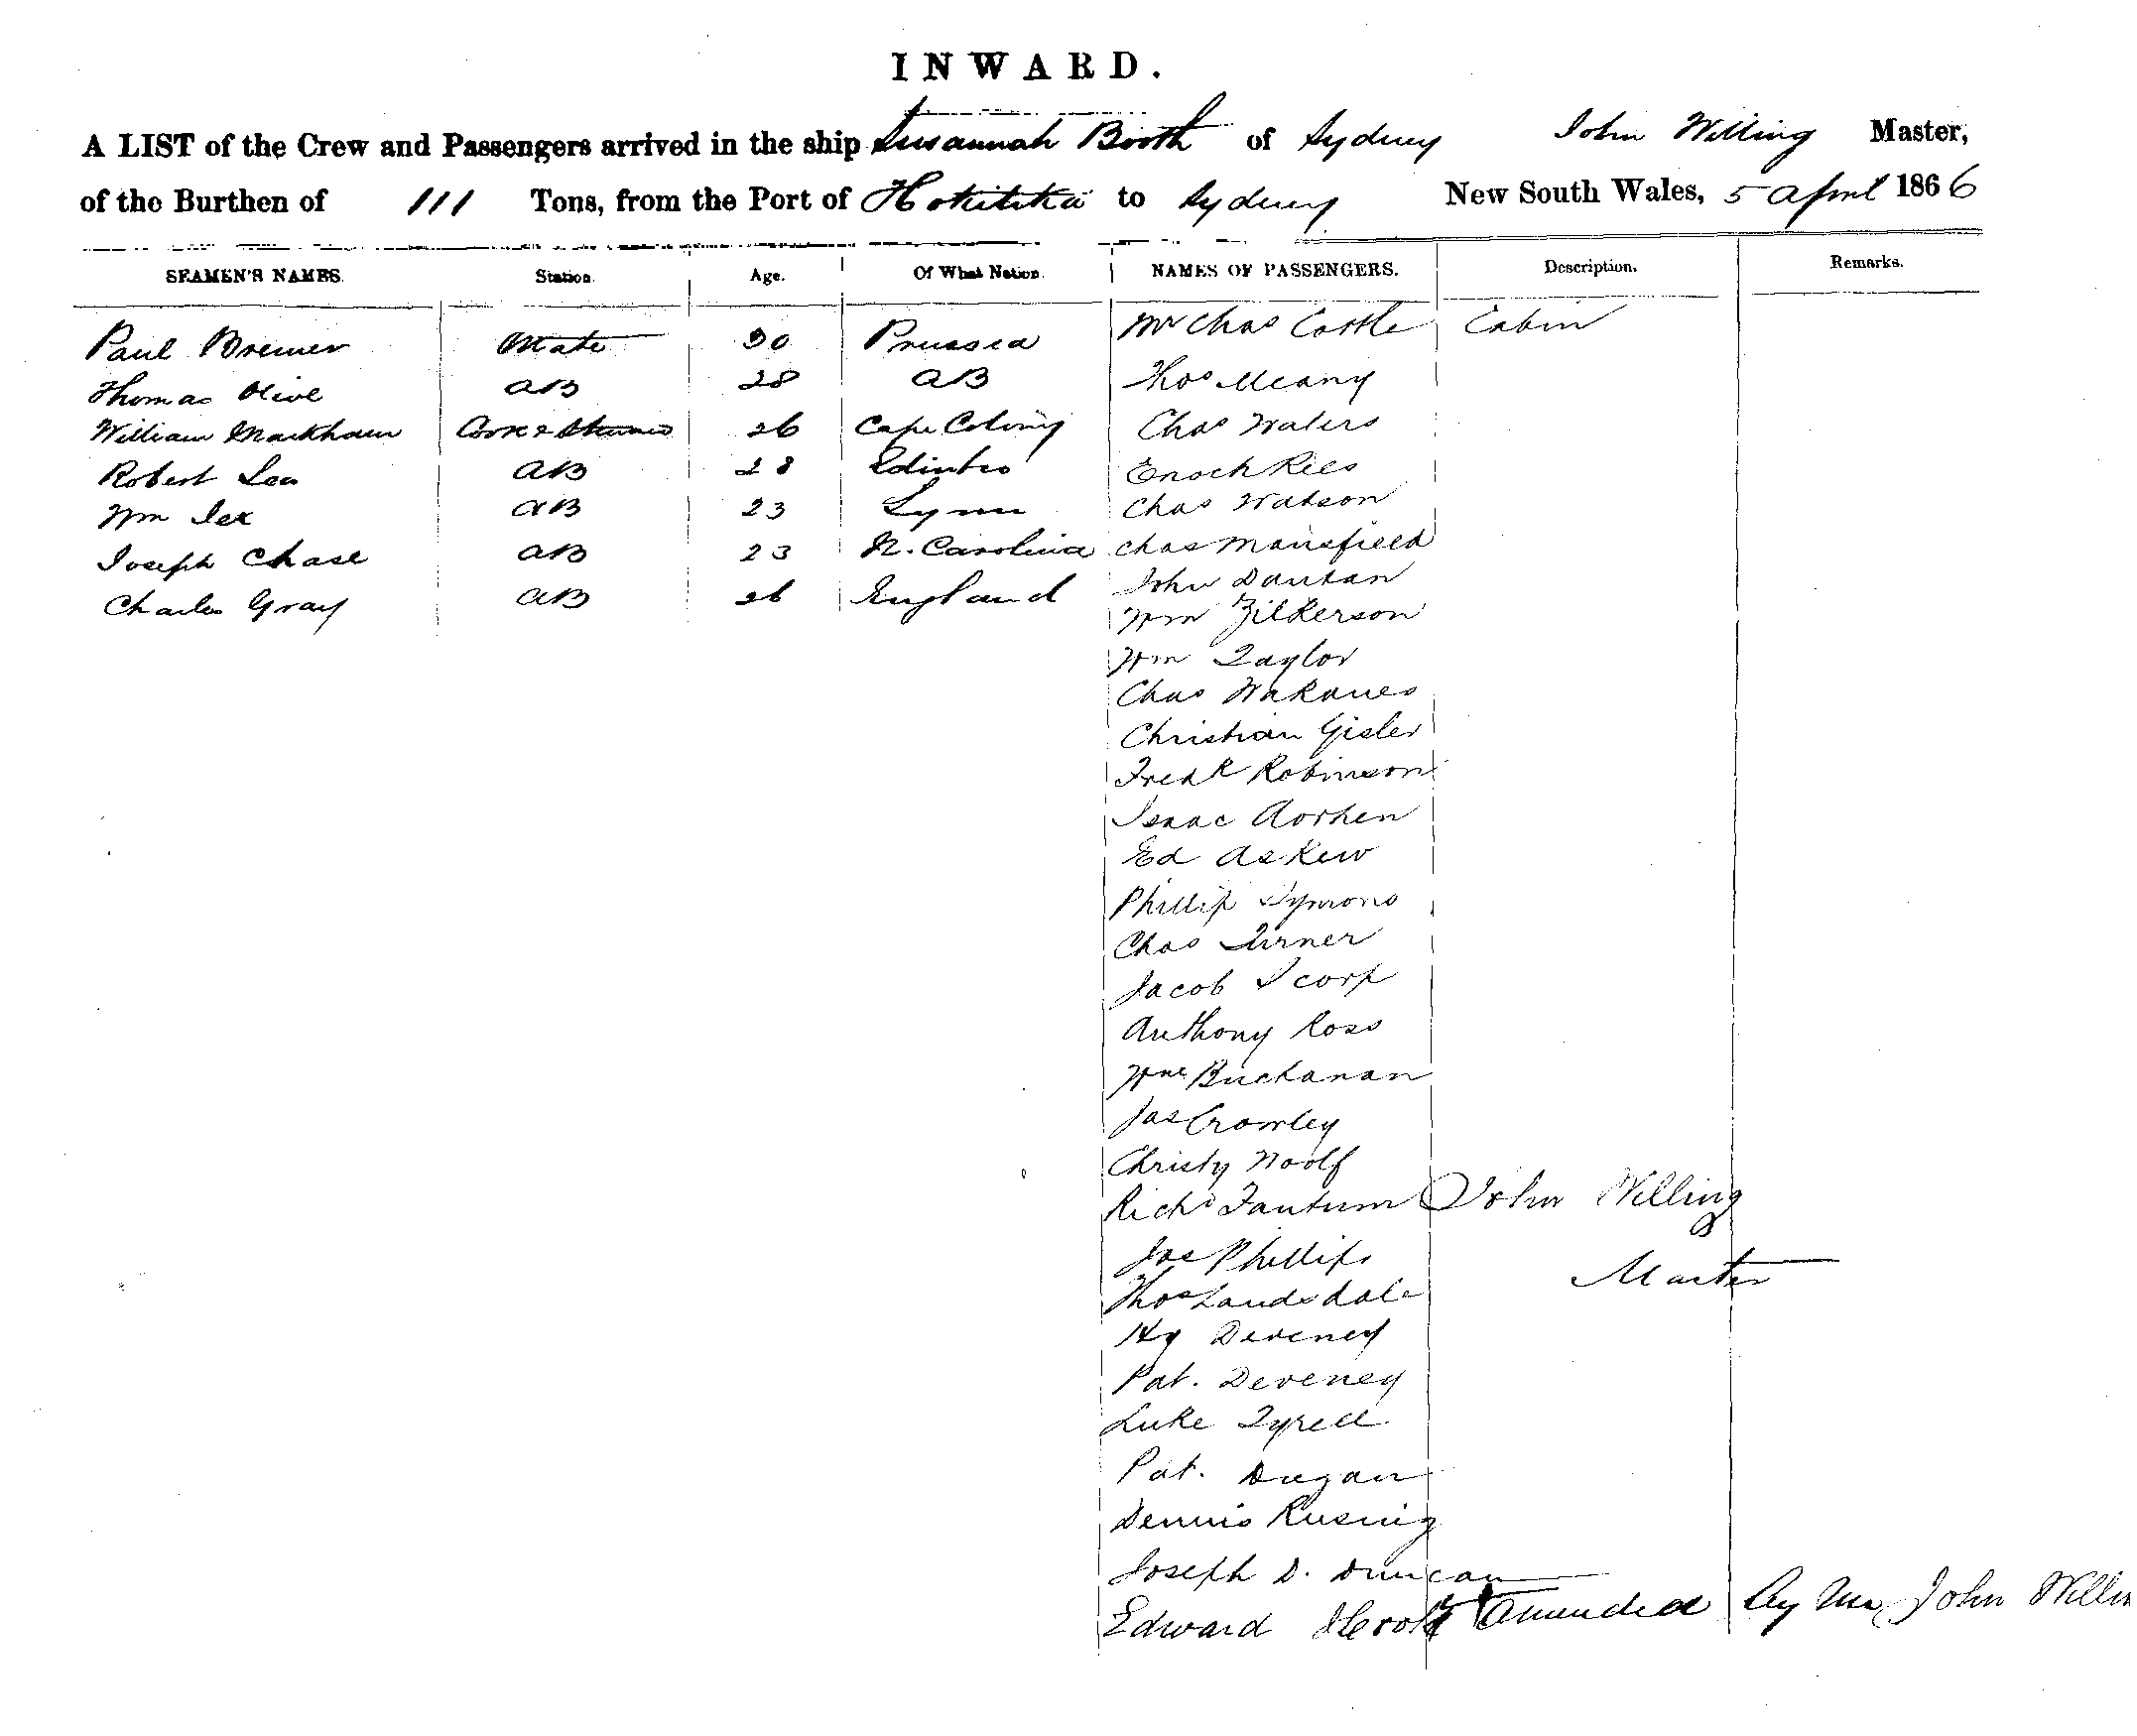 INWARD.
A LIST of the Crew and Passengers arrived in the ship Susannah Booth of Sydney John Willing Master,
of the Burthen of 111 Tons, from the Port of Hokitika to Sydney New South Wales, 5 April 1866
SEAMEN'S NAMES. Station. Age. Of What Nation. NAMES OF PASSENGERS. Description. Remarks.
Paul Bremer Mate 30 Prussia Mr Chas Castle Cabin
Thomas Olive AB 28 AB Thos Meany
William Markham Cook & Steward 26 Cape Colony Chas Waters
Robert Lea AB 28 Edinbro Enoch Rees
Wm Iex AB 23 Lynn Chas Watson
Joseph Chase AB 23 N. Carolina Chas Mansfield
Charles Gray AB 26 England John Dantan
Wm Zilkerson
Wm Taylor
Chas
Christian Gisler
Fredk Robinson
Isaac
Ed Askew
Phillip Symons
Chas Turner
Jacob Scorp
Anthony Ross
Wm Buchanan
Jas Crowley
Christy Woolf
Richd Fantum John Willing
Jos Phillips Master
Thos Landsdale
Hy Deveney
Pat. Deveney
Luke Tyrell
Pat. Dugan
Dennis Rusing
Joseph D. Duncan
Edward amended by me John Willin